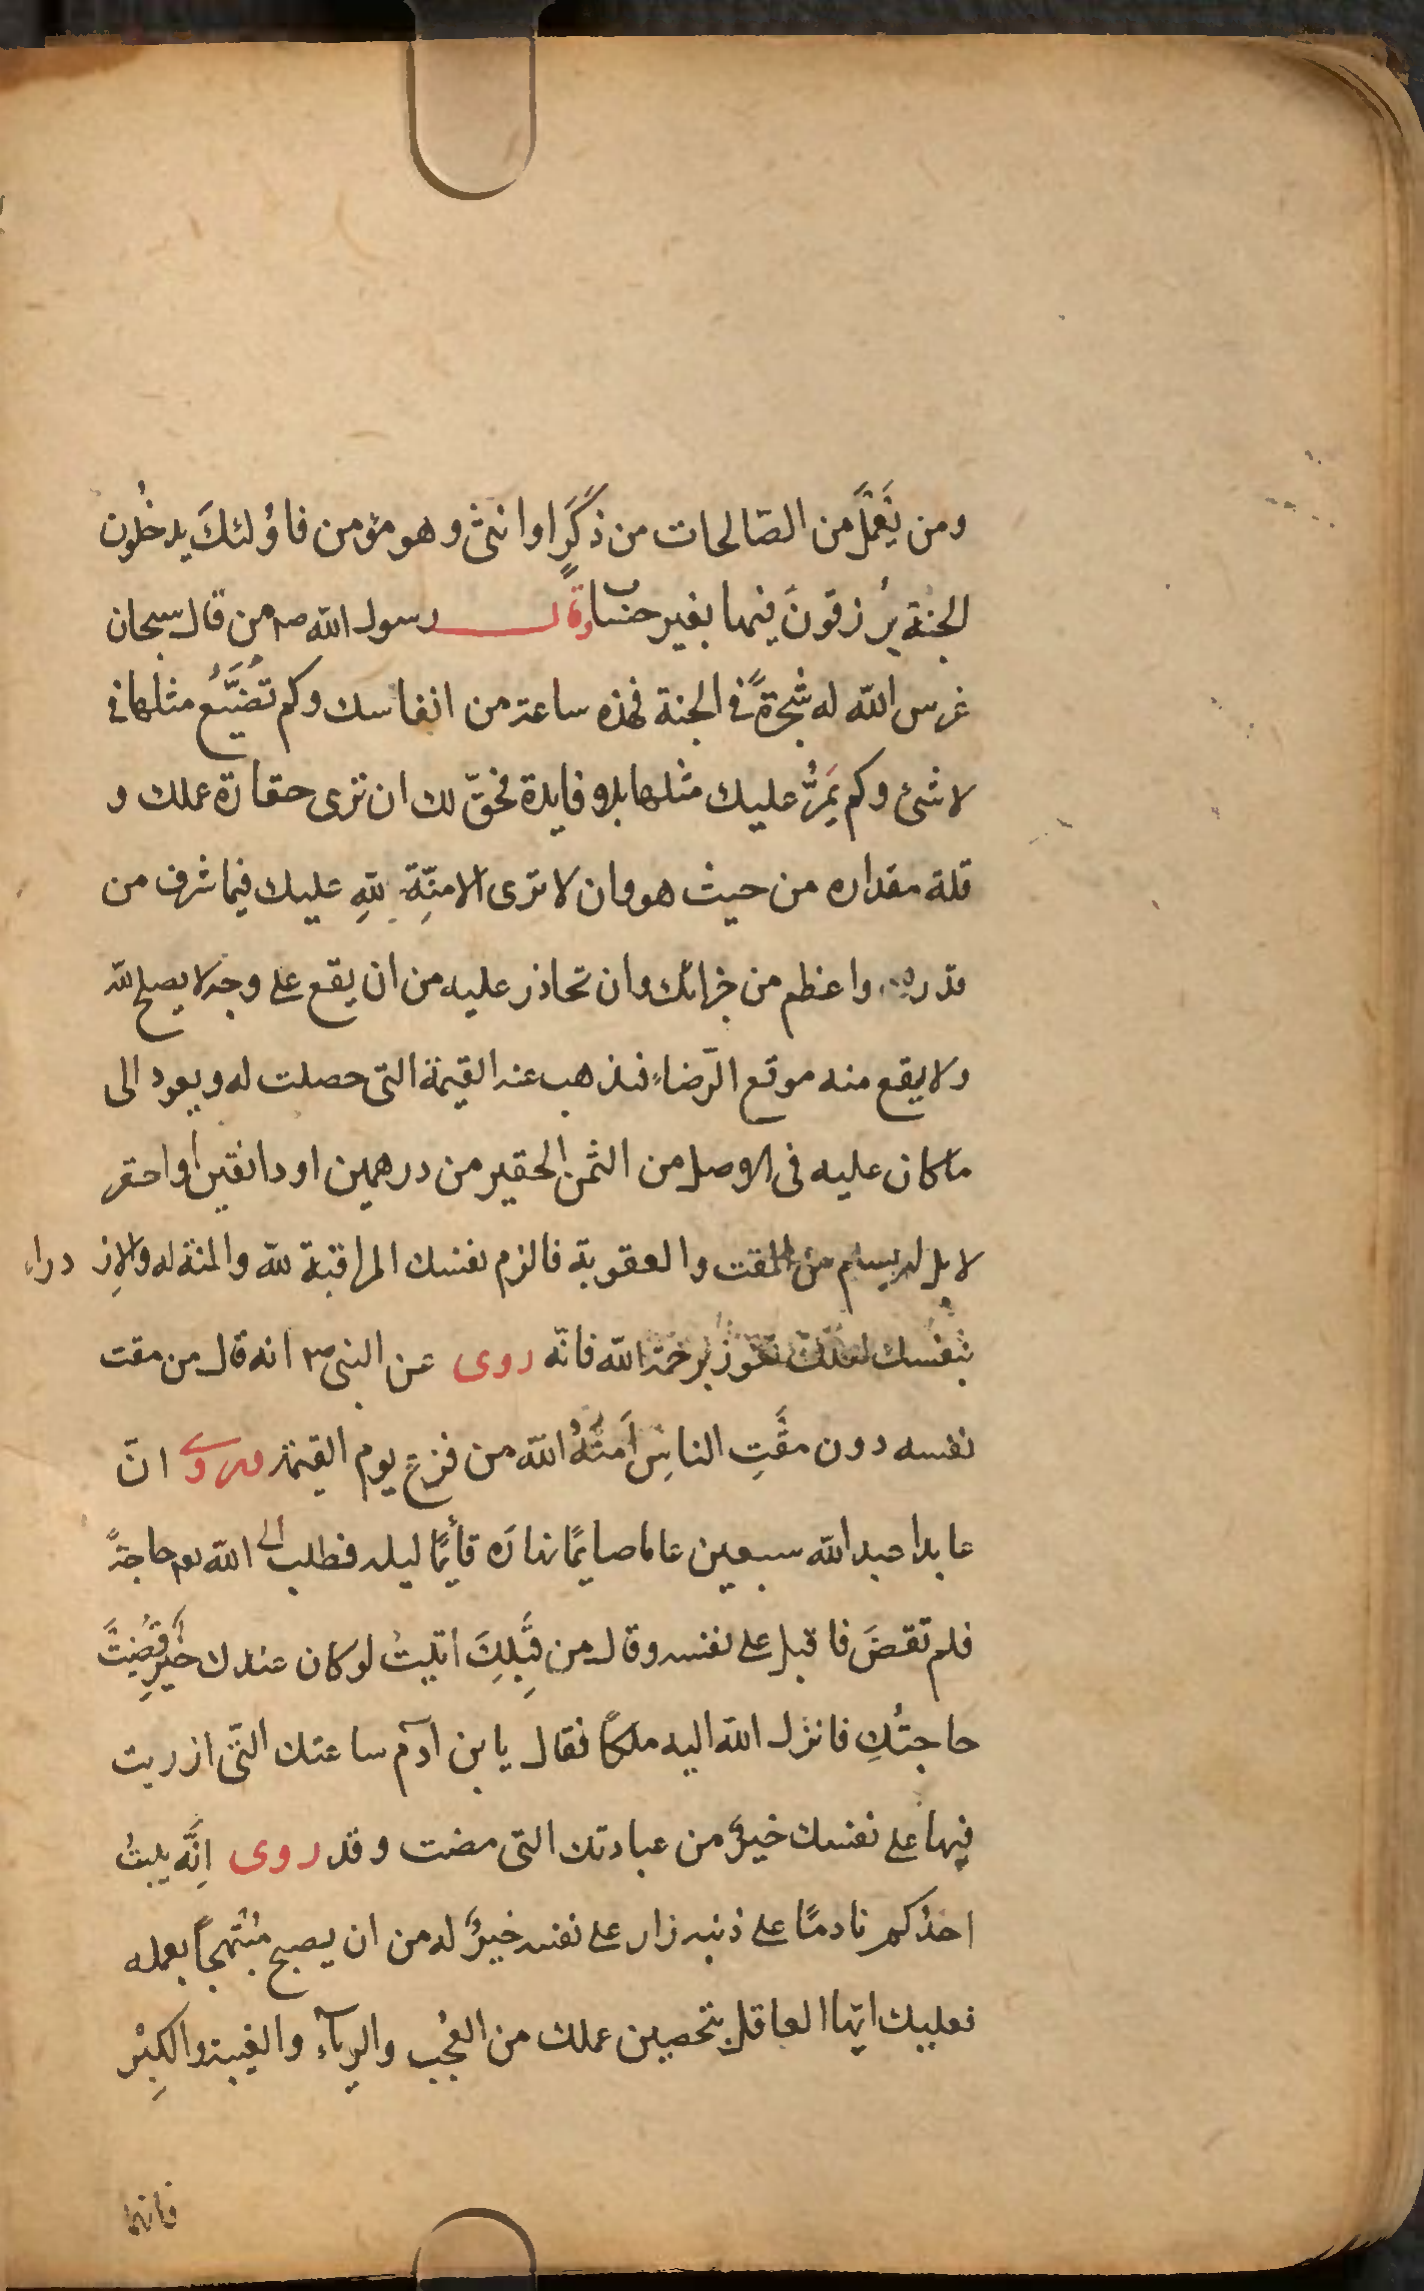 ومن يَعْمَلْ من الصّالحات من ذَكَرٍ او انثى وهو مؤمن فاوُلئكَ يدخلُون
الجنة يُرزقونَ فيها بغير حساب وقال رسول الله ص من قال سبحان
غرس الله له شجرةً في الجنة فهذه ساعة من انفاسك وكم تُضَيَّعُ مثلها في
لا شئ وكم يَمُرُّ عليك مثلها بلا فايدة فحقّ لك ان ترى حقارة عملك و
قلة مقداره من حيث هو وان لا ترى الا مِنّةَ للهِ عليك فيما شرف من
قدره واعظم من جزائك وان تحاذر عليه من ان يقع على وجه لا يصلح لله
ولا يقع منه موقع الرّضاءِ فتذهب عنه القيمة التى حصلت له ويعود الى
ما كان عليه فى الاصل من الثمن الحقير من درهمين او دانقين أو احقر
لا بل لم يسلم من المقت والعقوبة فالزم نفسك المراقبة لله والمنة له والاِزدراءِ
بنفسك لعلك تفوز برحمة الله فانّه روى عن النبى ص انه قال من مقت
نفسه دون مَقْتِ الناسِ اَمَنَهُ الله من فزع يوم القيمة وروى انّ
عابدا عبد الله سبعين عاما صايمًا نهارَه قائمًا ليله فطلب الى الله تعم حاجةً
فلم تقضَ فاقبل على نفسه وقال من قِبَلِكَ اتيتُ لو كان عندك خيرٌ قُضِيَتْ
حاجتُكِ فانزل الله اليه ملكًا فقال يابن ادم ساعتك التّى ازريت
فيها على نفسك خيرٌ من عبادتك التى مضت وقد روى اِنَّه يبيتُ
احدُكم نادمًا على ذنبه زار على نفسه خيرٌ له من ان يصبح مُبْتهجًا بعمله
فعليك ايّها العاقل بتحصين عملك من العُجب والرياۤء والغيبة والكِبْر
فانها